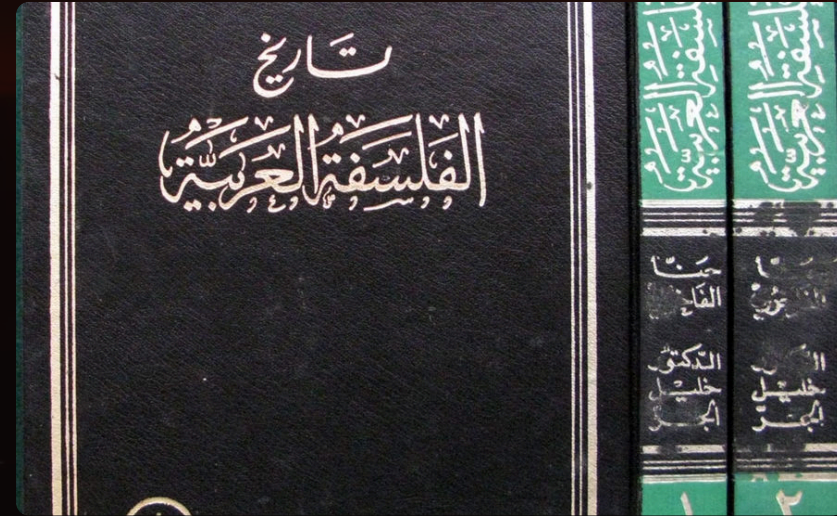 تاريخ
الفلسفة العربية
الفلسفة العربية
حنّا
الفاخوري
الدكتور
خليل
الجرّ
١
الفلسفة العربية
خليل
الجرّ
٢